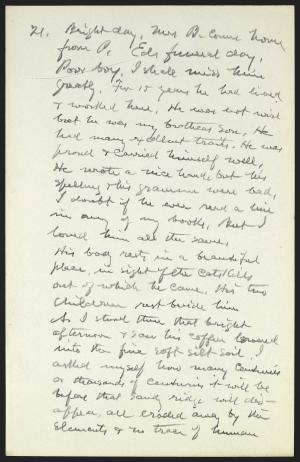 21. Bright day, Mrs B. comes home
from P. Eds funeral day,
Poor boy, I shall miss him
greatly. For 15 years he had lived
& worked here. He was not wise
but he was my brothers son. He
had many excellent traits. He was
proud & carried himself well,
He wrote a nice hand, but his
spelling & his grammar were bad,
I doubt if he ever read a line
in any of my books. But I
loved him all the same.
His body rests in a beautiful
place, in sight of the Catskills
out of which he came. His two
children rest beside him
As I stood there that bright
afternoon & saw his coffin lowered
into the fine soft silt soil, I
asked myself how many centuries
or thousands of centuries it will be
before that sandy ridge will dis-
appear, all eroded away by the
elements & no trace of human